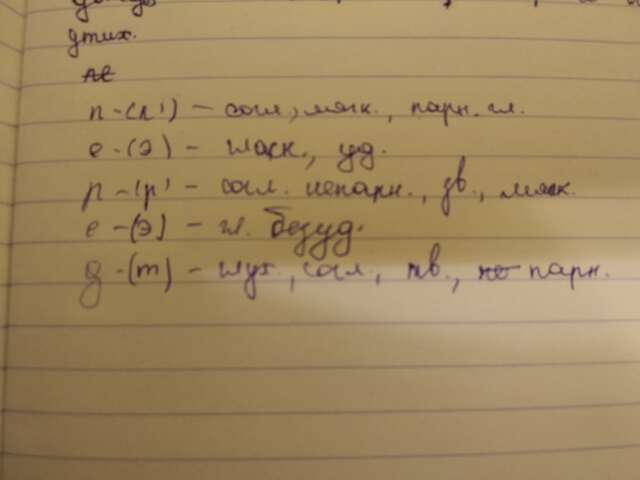 дтих.
п - (п') - согл., мягк., парн. гл.
е - (э) - гласн., уд.
р - (р' - согл. непарн., зв., мягк.
е - (э) - гл. безуд.
д - (т) - глух., согл., тв., парн.